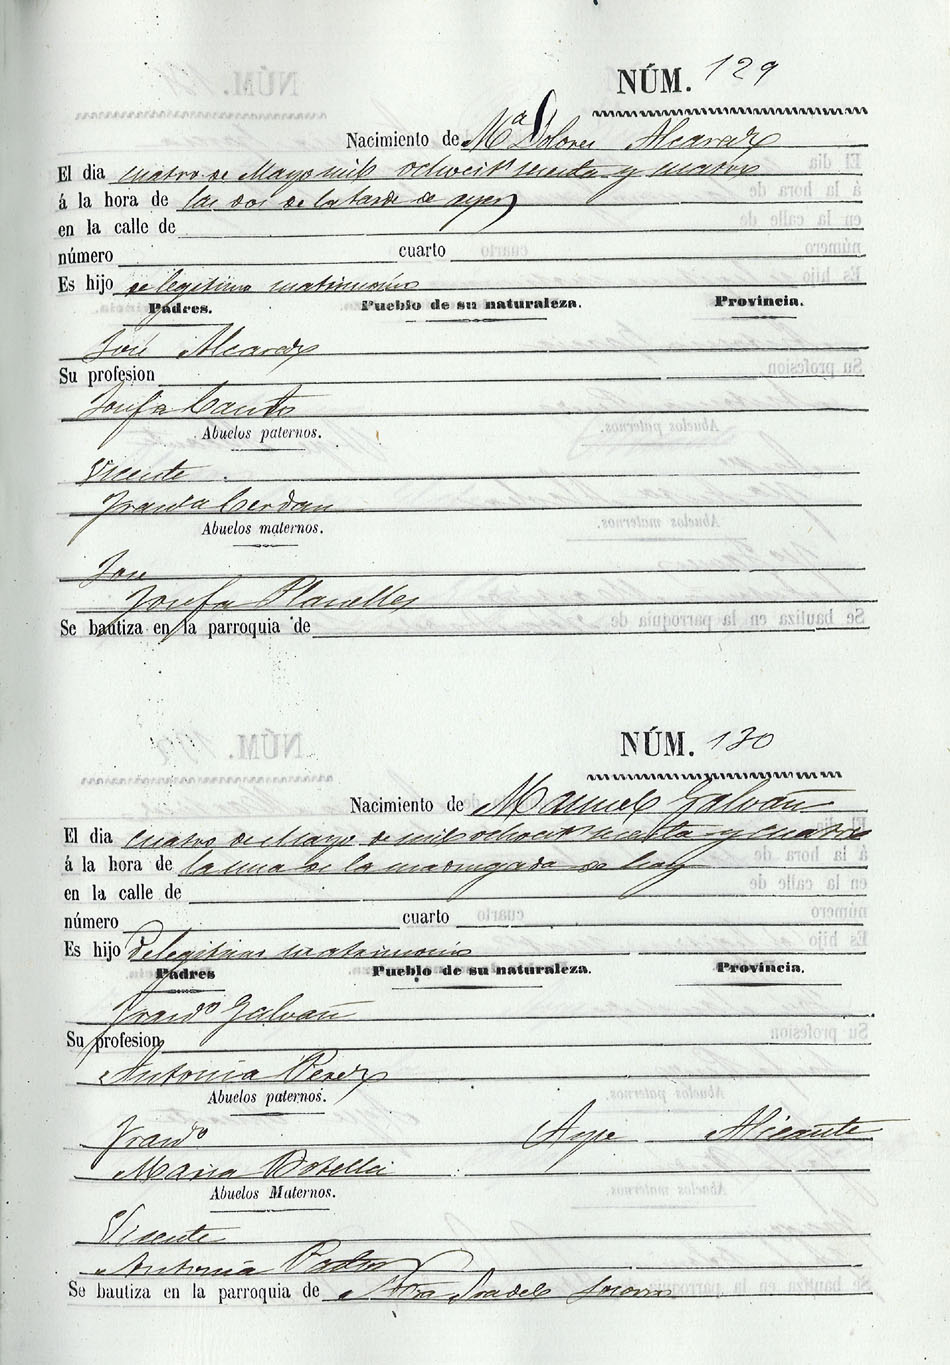 NÚM. 129
Nacimiento de Mª Dolores Alcaraz
El dia cuatro de Mayo mil ochocits sesenta y cuatro
á la hora de las dos de la tarde de ayer
en la calle de
número cuarto
Es hijo de legitimo matrimonio
Padres. Pueblo de su naturaleza. Provincia.
José Alcaraz
Su profesion
Josefa Cantó
Abuelos paternos.
Vicente
Franca Cerdan
Abuelos maternos.
Jose
Josefa Planelles
Se bautiza en la parroquia de
NÚM. 130
Nacimiento de Manuel Galvañ
El dia cuatro de Mayo de mil ochocits sesenta y cuatro
á la hora de la una de la madrugada de hoy
en la calle de
número cuarto
Es hijo de legitimo matrimonio
Padres Pueblo de su naturaleza. Provincia.
Frando Galvañ
Su profesion
Antonia Perez
Abuelos paternos.
Frando Aspe Alicante
Maria Botella
Abuelos Maternos.
Vicente
Antonia Pastor
Se bautiza en la parroquia de Ntra Sra del Socorro